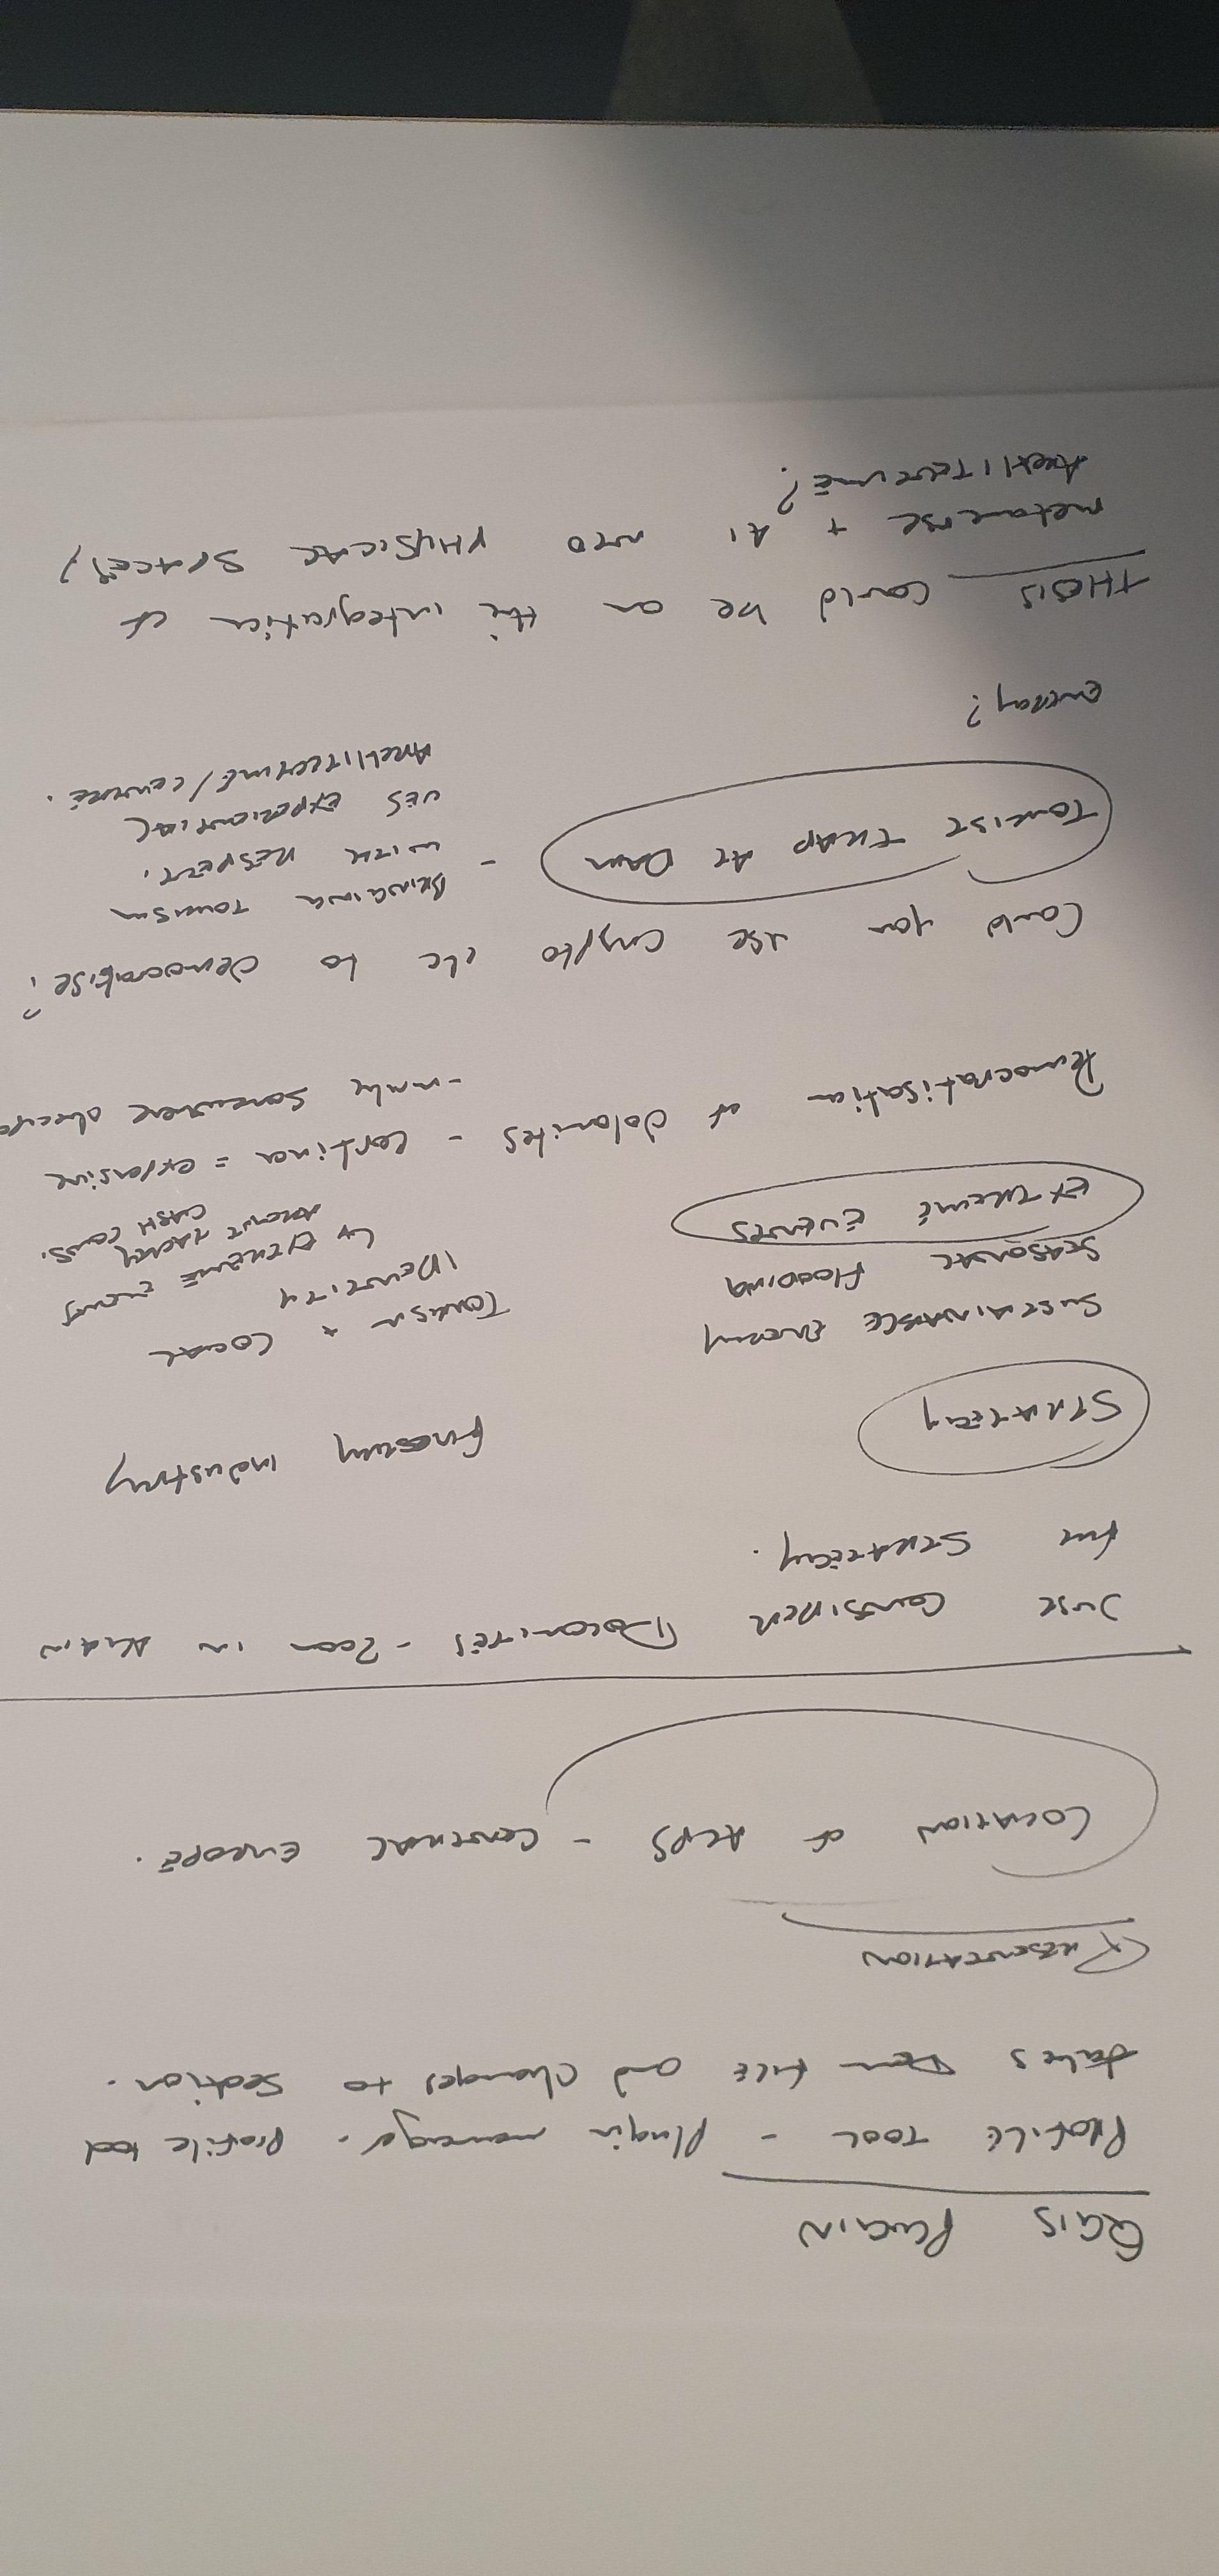 QGIS PLUGIN
PROFILE TOOL - Plugin manager. Profile tool
takes Dem FILE and changes to section.
PRESENTATION
LOCATION of ALPS - CENTRAL EUROPE.
JUST CONSIDER DOLOMITES - Zoom in AGAIN
FOR STRATEGY.
STRATEGY
Forestry industry
SUSTAINABLE ENERGY
TOURISM + LOCAL
IDENTITY
SEASONAL FLOODING
↳ EXTREME EVENTS
EXTREME EVENTS
CASH COWS.
Democratisation of dolomites - Cortina = expensive
- make somewhere
Could you use crypto etc to democratise?
TOURIST TRAP AT DAM -
BRINGING TOURISM
WITH RESPECT.
VES EXPERIENTIAL
ARCHITECTURE/CENTRE.
ENERGY?
THESIS could be on the integration of
metaverse + AI INTO PHYSICAL SPACES/
ARCHITECTURE?